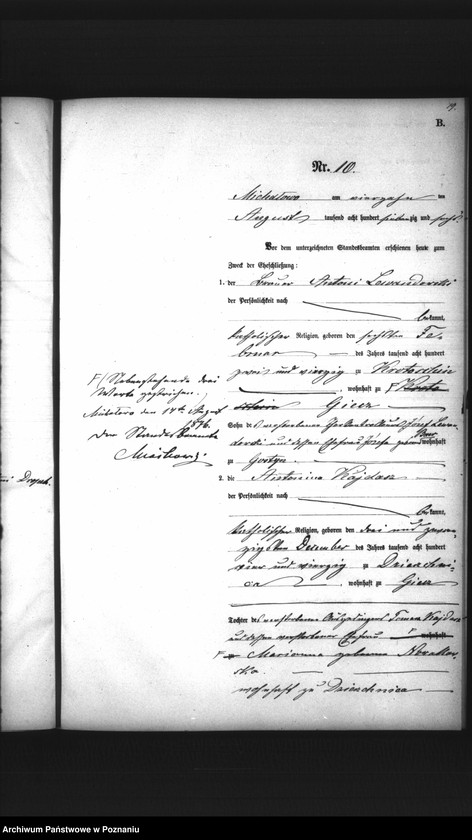 19.
B.
Nr. 10.
Michałowo am vierzehn ten
August tausend acht hundert siebenzig und sechs
Vor dem unterzeichneten Standesbeamten erschienen heute zum
Zweck der Eheschließung:
1. der Brauer Antoni Lewandowski
der Persönlichkeit nach
bekannt,
katholischer Religion, geboren den sechsten Fe-
bruar des Jahres tausend acht hundert
zwei und vierzig zu Krotoschin
, wohnhaft zu
Giecz
Sohn des verstorbenen Józef Lewan-
dowski und dessen Ehefrau geborene
wohnhaft
zu Gostyn
2. die Antonina Kajdasz
der Persönlichkeit nach
bekannt,
katholischer Religion, geboren den drei und zwan-
zigsten Dezember des Jahres tausend acht hundert
vier und vierzig zu Dzierzchni-
ca , wohnhaft zu Giecz
Tochter des verstorbenen Kajdasz
und dessen verstorbenen Ehefrau wohnhaft
Marianna geborene Nowakow-
ska
wohnhaft zu Dzierzchnica
F/ Nebenstehende drei
Worte gestrichen.
den 14ten August
1876.
Der Standesbeamte
Drzych.
Archiwum Państwowe w Poznaniu